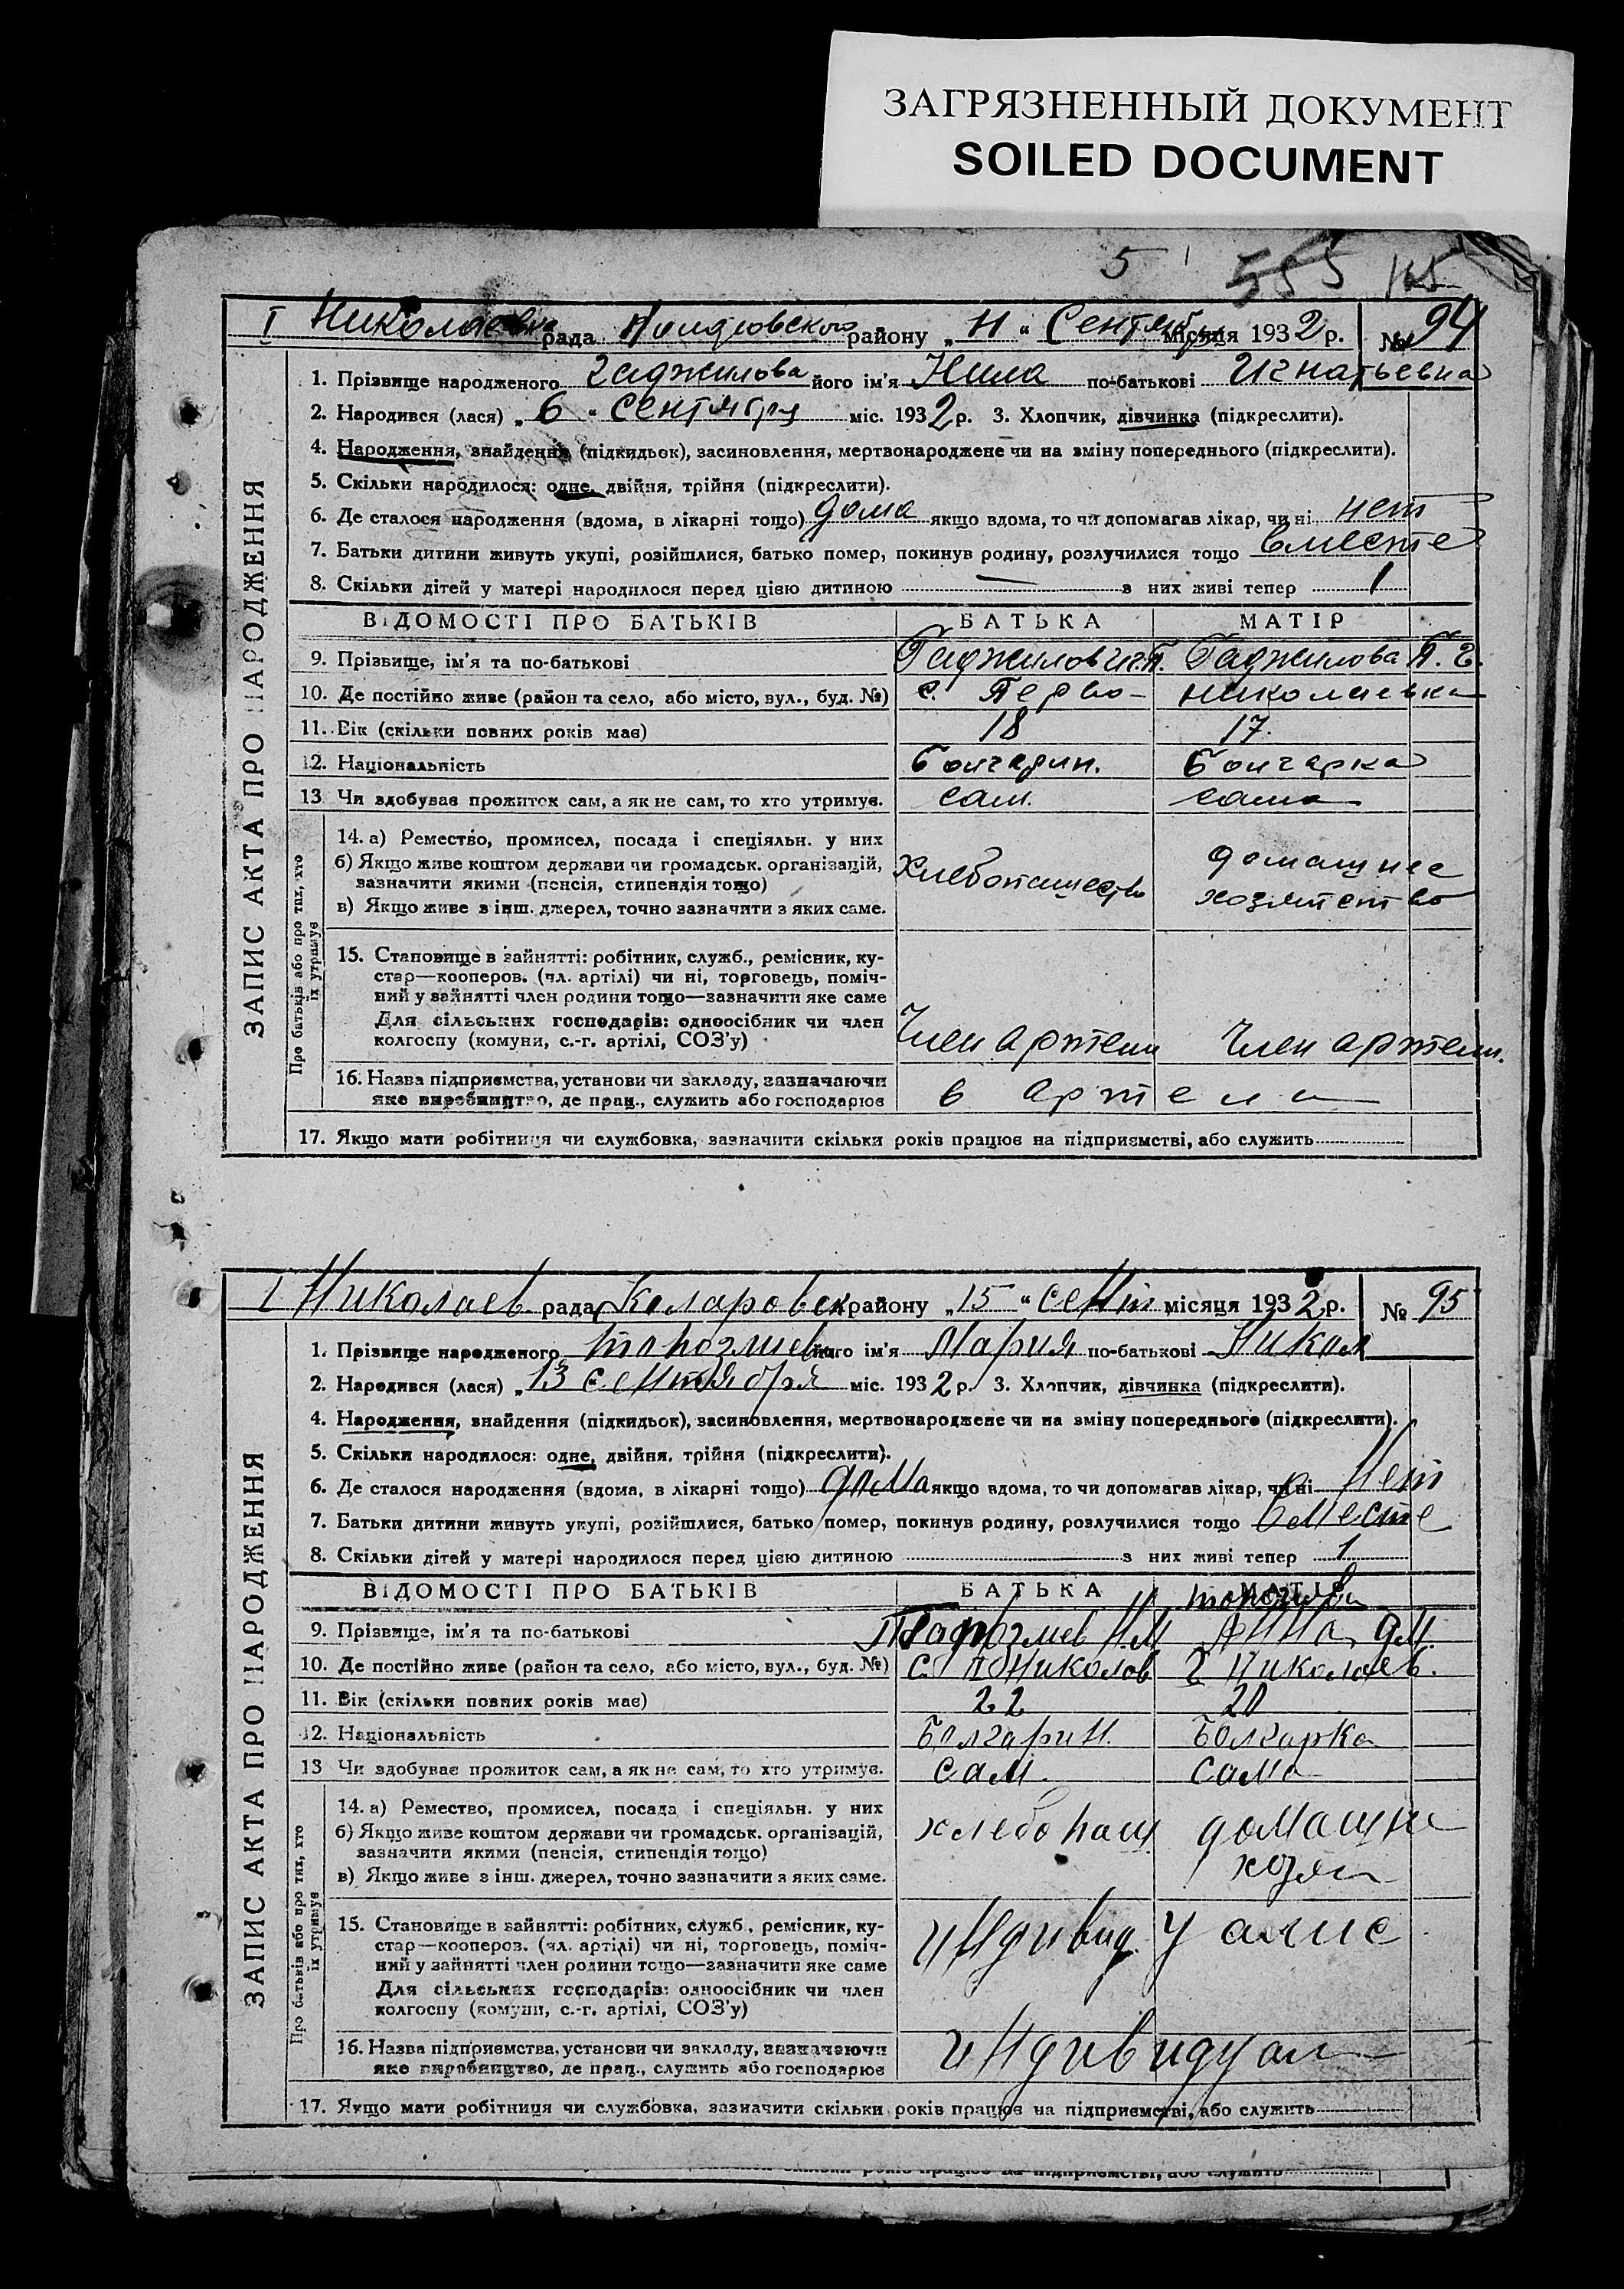 ЗАГРЯЗНЕННЫЙ ДОКУМЕНТ
SOILED DOCUMENT
5 555 165
I Николаевка рада району „11“ Сентября місяця 1932 р. № 94
ЗАПИС АКТА ПРО НАРОДЖЕННЯ
1. Прізвище народженого Гаджилова його ім'я Нила по-батькові Игнатьевна
2. Народився (лася) „6“ сентября міс. 1932 р. 3. Хлопчик, дівчинка (підкреслити).
4. Народження, знайдення (підкидьок), засиновлення, мертвонароджене чи на зміну попереднього (підкреслити).
5. Скільки народилося: одне, двійня, трійня (підкреслити).
6. Де сталося народження (вдома, в лікарні тощо) дома якщо вдома, то чи допомагав лікар, чи ні нет
7. Батьки дитини живуть укупі, розійшлися, батько помер, покинув родину, розлучилися тощо вместе
8. Скільки дітей у матері народилося перед цією дитиною — з них живі тепер 1
ВІДОМОСТІ ПРО БАТЬКІВ БАТЬКА МАТІР
9. Прізвище, ім'я та по-батькові Гаджилов Иг. П. Гаджилова П. Г.
10. Де постійно живе (район та село, або місто, вул., буд. №) с. Перво- николаевка
11. Вік (скільки повних років має) 18 17.
12. Національність Болгарин. Болгарка
13 Чи здобуває прожиток сам, а як не сам, то хто утримує. сам. сама
Про батьків або про тих, хто їх утримує
14. а) Ремество, промисел, посада і спеціяльн. у них
б) Якщо живе коштом держави чи громадськ. організацій,
зазначити якими (пенсія, стипендія тощо)
в) Якщо живе з інш. джерел, точно зазначити з яких саме.
Хлебопашество домашнее
хозяйство
15. Становище в зайнятті: робітник, служб., ремісник, ку-
стар—кооперов. (чл. артілі) чи ні, торговець, поміч-
ний у зайнятті член родини тощо—зазначити яке саме
Для сільських господарів: одноосібник чи член
колгоспу (комуни, с.-г. артілі, СОЗ'у)
Член артели Член артели.
16. Назва підприємства, установи чи закладу, зазначаючи
яке виробництво, де прац., служить або господарює в артели
17. Якщо мати робітниця чи службовка, зазначити скільки років працює на підприємстві, або служить
I Николаев рада Коларовск району „15“ сент місяця 1932 р. № 95
ЗАПИС АКТА ПРО НАРОДЖЕННЯ
1. Прізвище народженого його ім'я Мария по-батькові Никол
2. Народився (лася) „13 сентября міс. 1932 р. 3. Хлопчик, дівчинка (підкреслити).
4. Народження, знайдення (підкидьок), засиновлення, мертвонароджене чи на зміну попереднього (підкреслити).
5. Скільки народилося: одне, двійня, трійня (підкреслити).
6. Де сталося народження (вдома, в лікарні тощо) дома якщо вдома, то чи допомагав лікар, чи ні нет
7. Батьки дитини живуть укупі, розійшлися, батько помер, покинув родину, розлучилися тощо вместе
8. Скільки дітей у матері народилося перед цією дитиною з них живі тепер 1
ВІДОМОСТІ ПРО БАТЬКІВ БАТЬКА МАТІР
9. Прізвище, ім'я та по-батькові Н.М Анна
10. Де постійно живе (район та село, або місто, вул., буд. №) с. Николов Николаев.
11. Вік (скільки повних років має) 22 20
12. Національність Болгарин. Болгарка
13 Чи здобуває прожиток сам, а як не сам, то хто утримує. сам. сама
Про батьків або про тих, хто їх утримує
14. а) Ремество, промисел, посада і спеціяльн. у них
б) Якщо живе коштом держави чи громадськ. організацій,
зазначити якими (пенсія, стипендія тощо)
в) Якщо живе з інш. джерел, точно зазначити з яких саме.
хлебопаш домашне
хозяй
15. Становище в зайнятті: робітник, служб., ремісник, ку-
стар—кооперов. (чл. артілі) чи ні, торговець, поміч-
ний у зайнятті член родини тощо—зазначити яке саме
Для сільських господарів: одноосібник чи член
колгоспу (комуни, с.-г. артілі, СОЗ'у)
16. Назва підприємства, установи чи закладу, зазначаючи
яке виробництво, де прац., служить або господарює индивидуал
17. Якщо мати робітниця чи службовка, зазначити скільки років працює на підприємстві, або служить